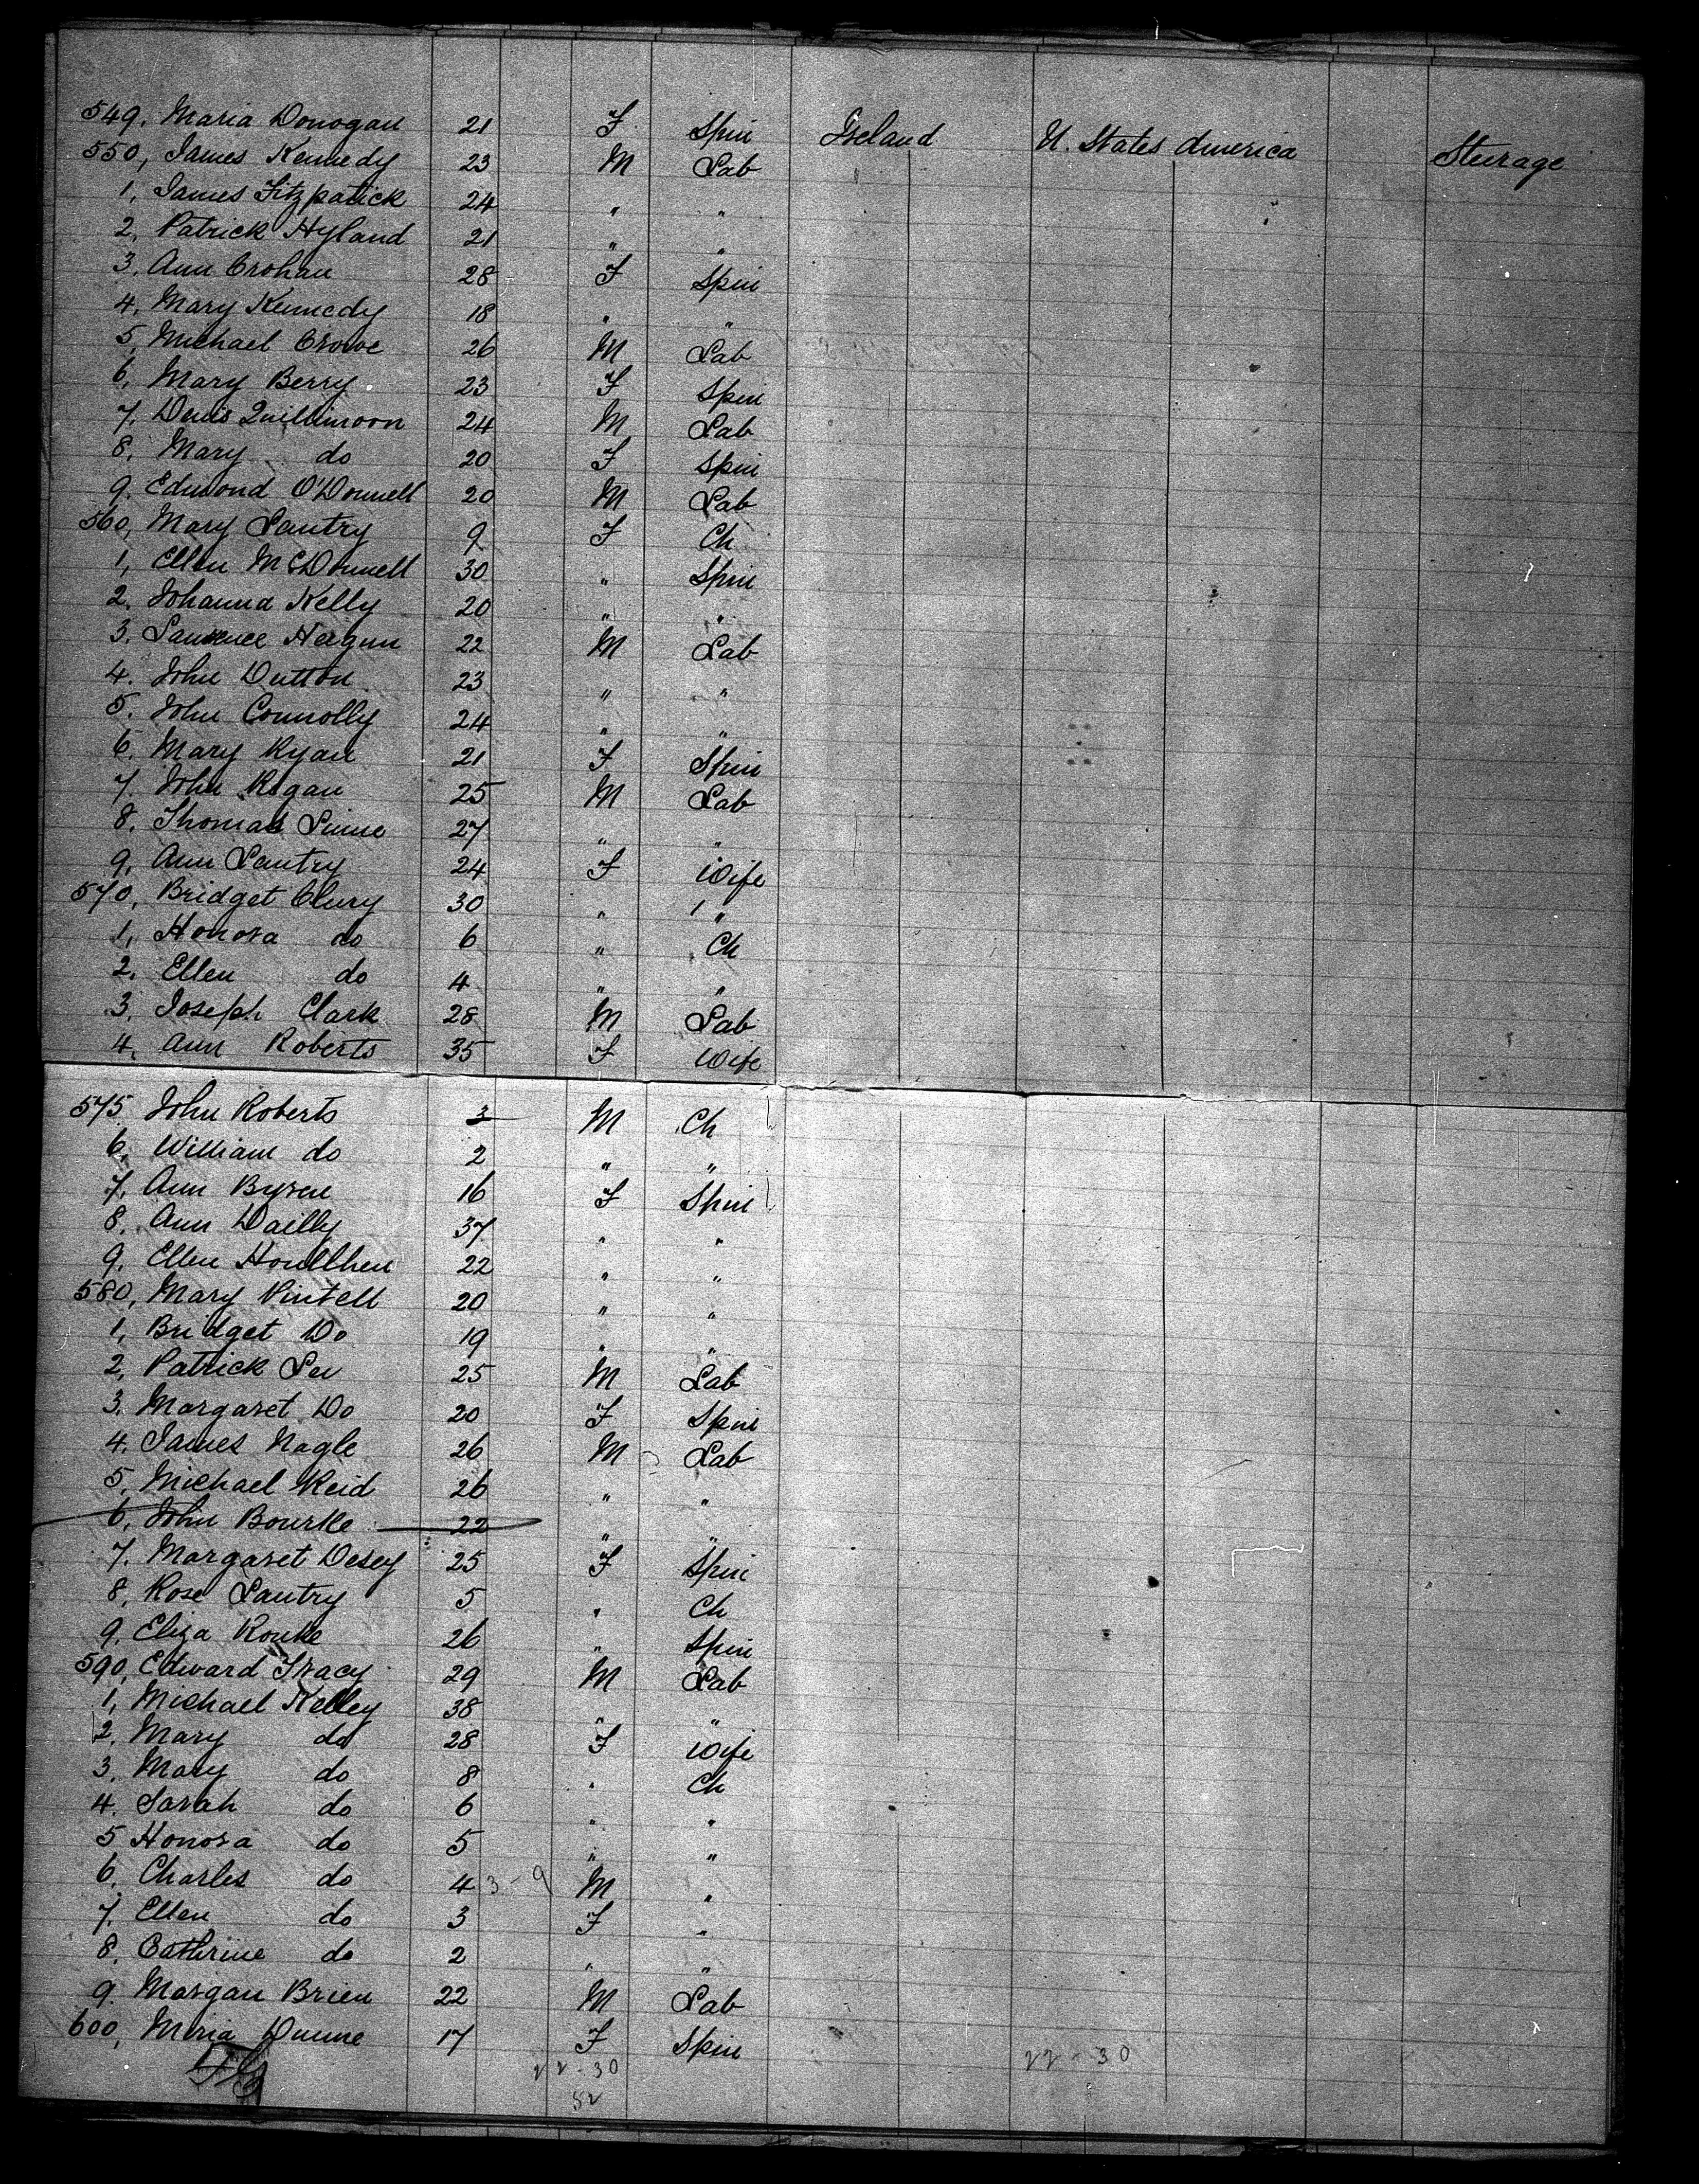 549, Maria Donogan 21 F Spin Ireland U. States America Steerage
550, James Kennedy 23 M Lab
1, James Fitzpatick 24 " "
2, Patrick Hyland 21 " "
3, Ann Crohan 28 F Spin
4, Mary Kennedy 18 " "
5, Michael Crowe 26 M Lab
6, Mary Berry 23 F Spin
7, Denis 24 M Lab
8, Mary do 20 F Spin
9. Edmond O'Donnell 20 M Lab
560, Mary Lantry 9 F Ch
1, Ellen McDonnell 30 " Spin
2. Johanna Kelly 20 " "
3. Laurence 22 M Lab
4. John Dutton 23 " "
5. John Connolly 24 " "
6. Mary Ryan 21 F Spin
7. John Regan 25 M Lab
8. Thomas 27 " "
9, Ann Lantry 24 F Wife
570, Bridget Clury 30 " "
1, Honora do 6 " Ch
2. Ellen do 4 " "
3. Joseph Clark 28 M Lab
4. Ann Roberts 35 F Wife
575 John Roberts 3 M Ch
6, William do 2 " "
7, Ann Byren 16 F Spin
8, Ann Dailly 37 " "
9, Ellen 22 " "
580, Mary Pintell 20 " "
1, Bridget Do 19 " "
2, Patrick 25 M Lab
3. Margaret Do 20 F Spin
4. James Nagle 26 M Lab
5, Michael Reid 26 " "
6, John Bourke 22 " "
7. Margaret Desey 25 F Spin
8, Rose Lantry 5 " Ch
9. Eliza Rourke 26 " Spin
590, Edward Tracy 29 M Lab
1, Michael Kelley 38 " "
2, Mary do 28 F Wife
3, Mary do 8 " Ch
4. Sarah do 6 " "
5 Honora do 5 " "
6, Charles do 4 3-9 M "
7, Ellen do 3 F "
8, Cathrine do 2 " "
9. Morgan Brien 22 M Lab
600, Maria Dunne 17 F Spin
22-30 22-30
52